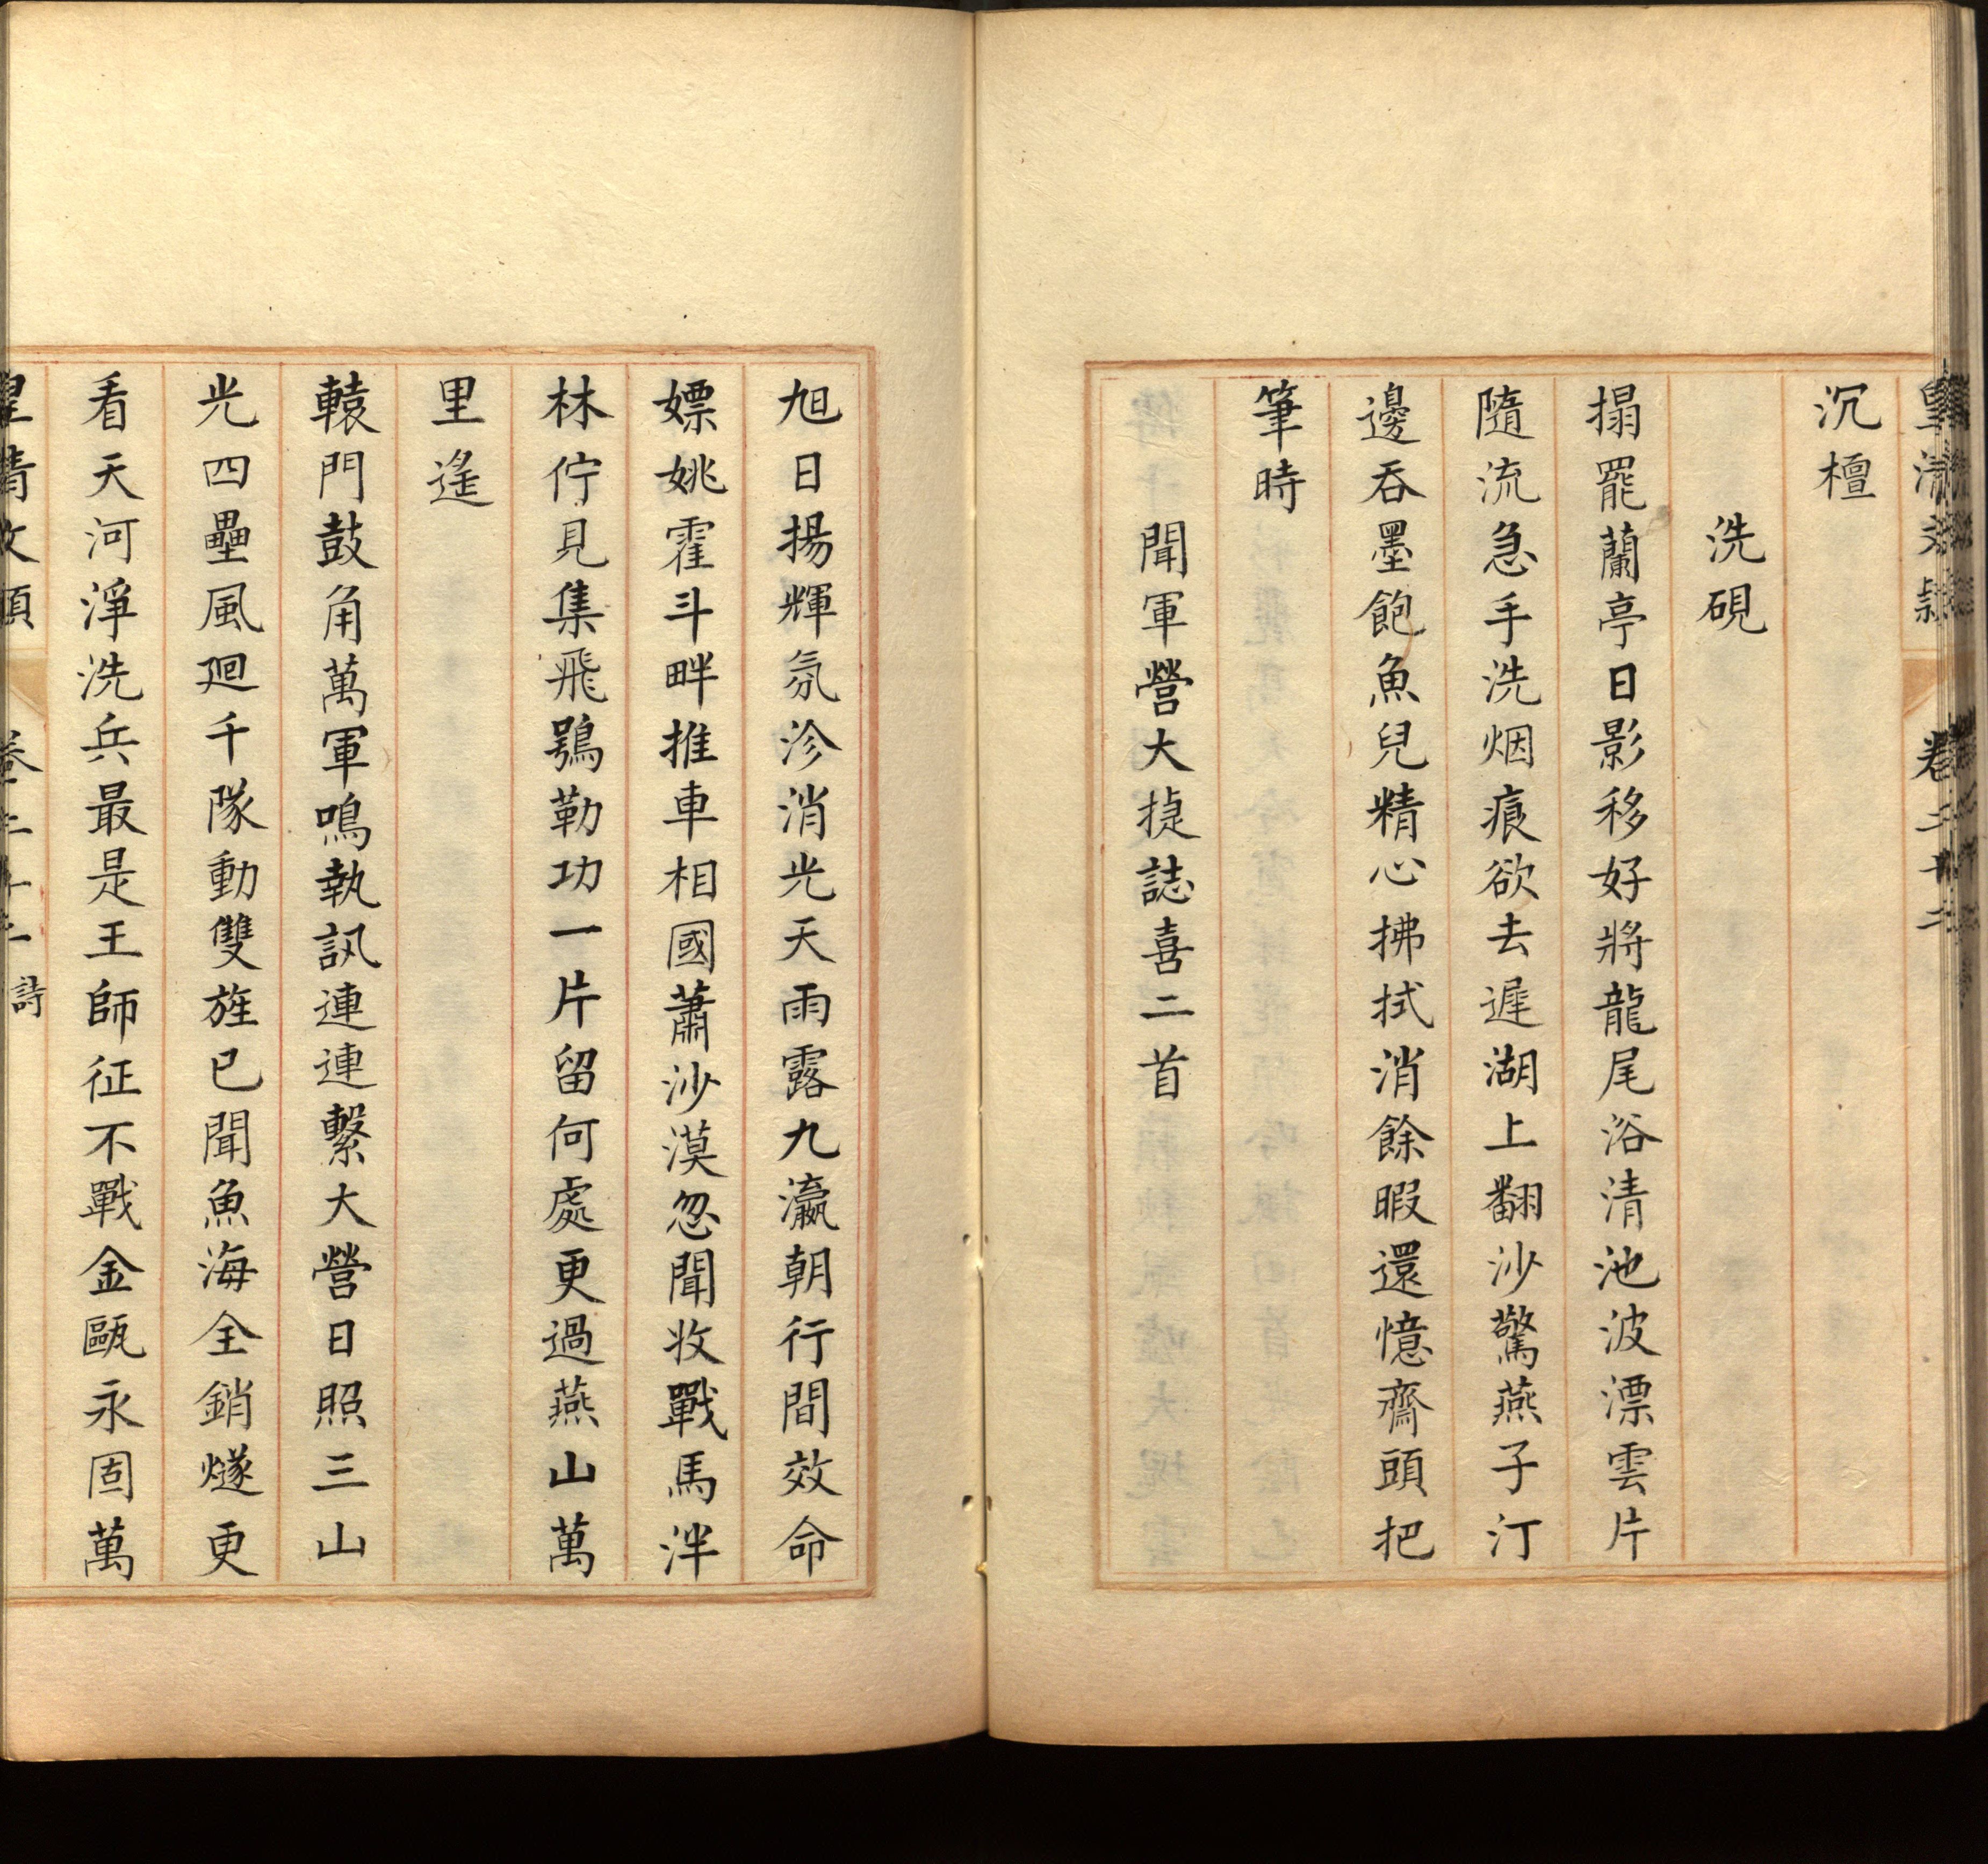 皇清文穎 卷二十二
沉檀
洗硯
搨罷蘭亭日影移好將龍尾浴清池波漂雲片
隨流急手洗烟痕欲去遲湖上翻沙驚燕子汀
邊吞墨飽魚兒精心拂拭消餘暇還憶齋頭把
筆時
聞軍營大捷誌喜二首
旭日揚輝氛沴消光天雨露九瀛朝行間效命
嫖姚霍斗畔推車相國蕭沙漠忽聞收戰馬泮
林佇見集飛鴞勒功一片留何處更過燕山萬
里遙
轅門鼓角萬軍鳴執訊連連繫大營日照三山
光四壘風廻千隊動雙旌已聞魚海全銷燧更
看天河淨洗兵最是王師征不戰金甌永固萬
皇清文穎 卷二十二 詩